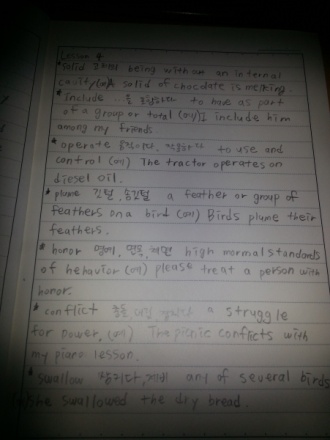 Lesson 4
* solid 고체의 being without an internal
cavity (예) solid of chocolate is melting.
* include ...을 포함하다 to have as part
of a group or total (예) I include him
among my friends.
* operate 움직이다, 작동하다 to use and
control (예) The tractor operates on
diesel oil.
* plume 깃털, 솜깃털 a feather or group of
feathers on a bird (예) Birds plume their
feathers.
* honor 명예, 명동, 체면 high mormal standards
of hehavior (예) please treat a person with
honor.
* conflict 충돌, 대립, a struggle
for power, (예) The picnic conflicts with
my piano lesson.
* swallow 삼키다, 제비 any of several birds
she swallowed the dry bread.